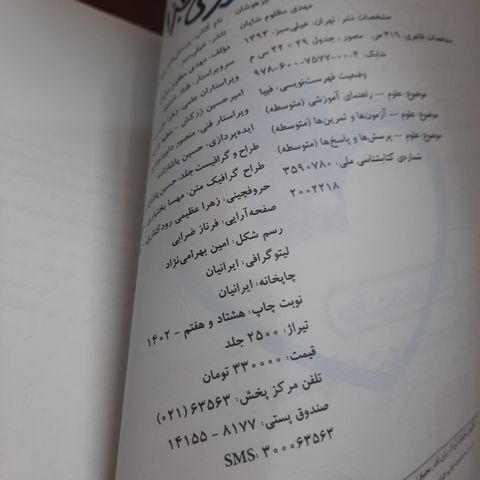 مهدی مظلوم شایان
مشخصات نشر: تهران، خیلی‌سبز، ۱۳۹۳
مشخصات ظاهری: ۴۱۹ ص. مصور، جدول ۲۹ × ۲۲ س م
شابک: ۹۷۸-۶۰۰-۷۵۷۷-۰۰-۴
وضعیت فهرست‌نویسی: فیپا
موضوع: علوم – راهنمای آموزشی (متوسطه)
موضوع: علوم – آزمون‌ها و تمرین‌ها (متوسطه)
موضوع: علوم – پرسش‌ها و پاسخ‌ها (متوسطه)
شماره‌ی کتابشناسی ملی: ۳۵۹۰۷۸۰
۲۰۰۲۲۱۸
نام کتاب:
ناشر: خیلی‌سبز
مؤلف: مهدی مظلوم
سرویراستار:
ویراستاران علمی: زهرا
امیرحسین زرکش –
ویراستار فنی: منصور
ایده‌پردازی: حسین
طراح و گرافیست جلد: حسین
طراح گرافیک متن: مهسا
حروفچینی: زهرا عظیمی رودکناری –
صفحه‌آرایی: فرناز ضرابی
رسم شکل: امین بهرامی‌نژاد
لیتوگرافی: ایرانیان
چاپخانه: ایرانیان
نوبت چاپ: هشتاد و هفتم – ۱۴۰۲
تیراژ: ۲۵۰۰ جلد
قیمت: ۳۳۰۰۰۰ تومان
تلفن مرکز پخش: ۶۳۵۶۳ (۰۲۱)
صندوق پستی: ۸۱۷۷ – ۱۴۱۵۵
SMS: ۳۰۰۰۶۳۵۶۳